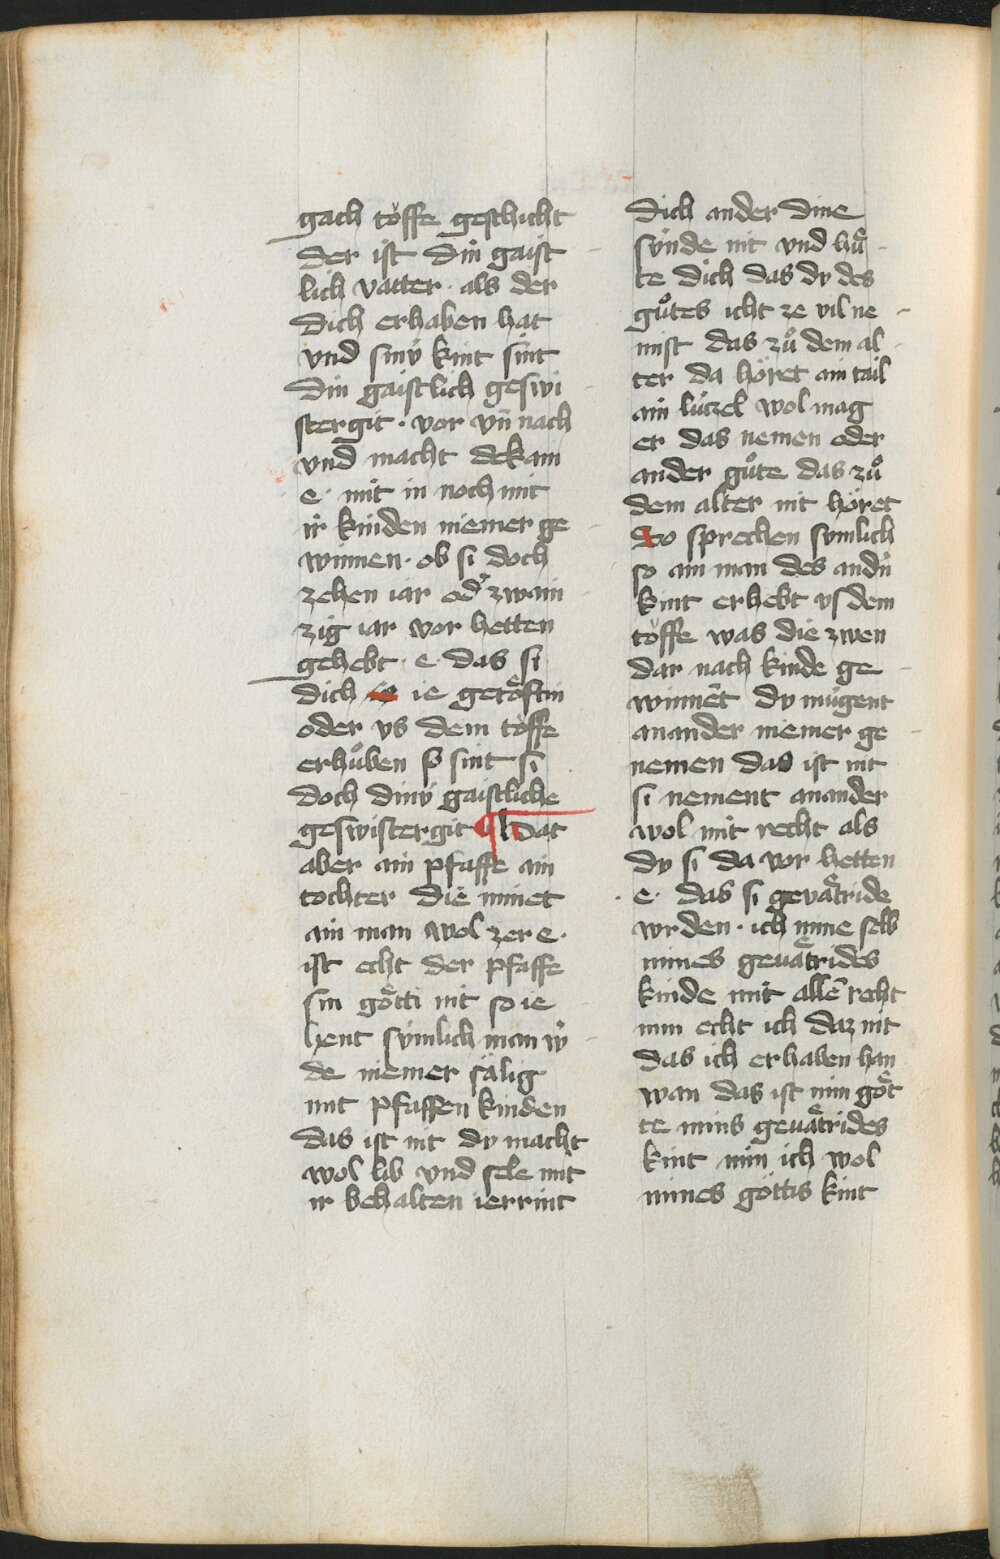 gach toͤffe geschicht
der ist din gaist
lich vatter · als der
dich erhaben hat
vnd sinÿ kint sint
din gaistlich geswi
stergit · vor vn̄ nach
vnd macht dekain
e · mit in noch mit
ir kinden niemer ge
winnen · ob si doch
zehen iar od' zwain
zig iar vor hetten
gehebt · e · das si
dich ie getoͤftin
oder vs dem toͤffe
erhuͦben so sint si
doch dinÿ gaistliche
geswistergit ¶ Hat
aber ain pfaffe ain
tochter die nimet
ain man wol zer e ·
ist echt der pfaffe
sin goͤtti nit so ie
hent sÿmlich man wͦ
de niemer saͤlig
mit pfaffen kinden
das ist nit dv macht
wol lib vnd sele mit
ir behalten ierrint
dich ander dine
sÿnde nit vnd huͤ
te dich das dv des
guͦtes icht ze vil ne
mist das zuͦ dem al
ter da hoͤret ain tail
ain lúczel wol mag
er das nemen oder
ander guͦte das zuͦ
dem alter nit hoͤret
So sprechen sÿmlich
so ain man des andn̄
kint erhebt vs dem
toͤffe was die zwen
dar nach kinde ge
winnēt dv múgent
anander niemer ge
nemen das ist nit
si nement anander
wol mit recht als
dv si da vor hetten
e · das si gevaͤtride
wrden · ich nime selb
mines gevaͤtrides
kinde mit allē recht
nim echt ich daz nit
das ich erhaben han
wan das ist min goͤt
te mins gevaͤtrides
kint nim ich wol
mines goͤttis kint